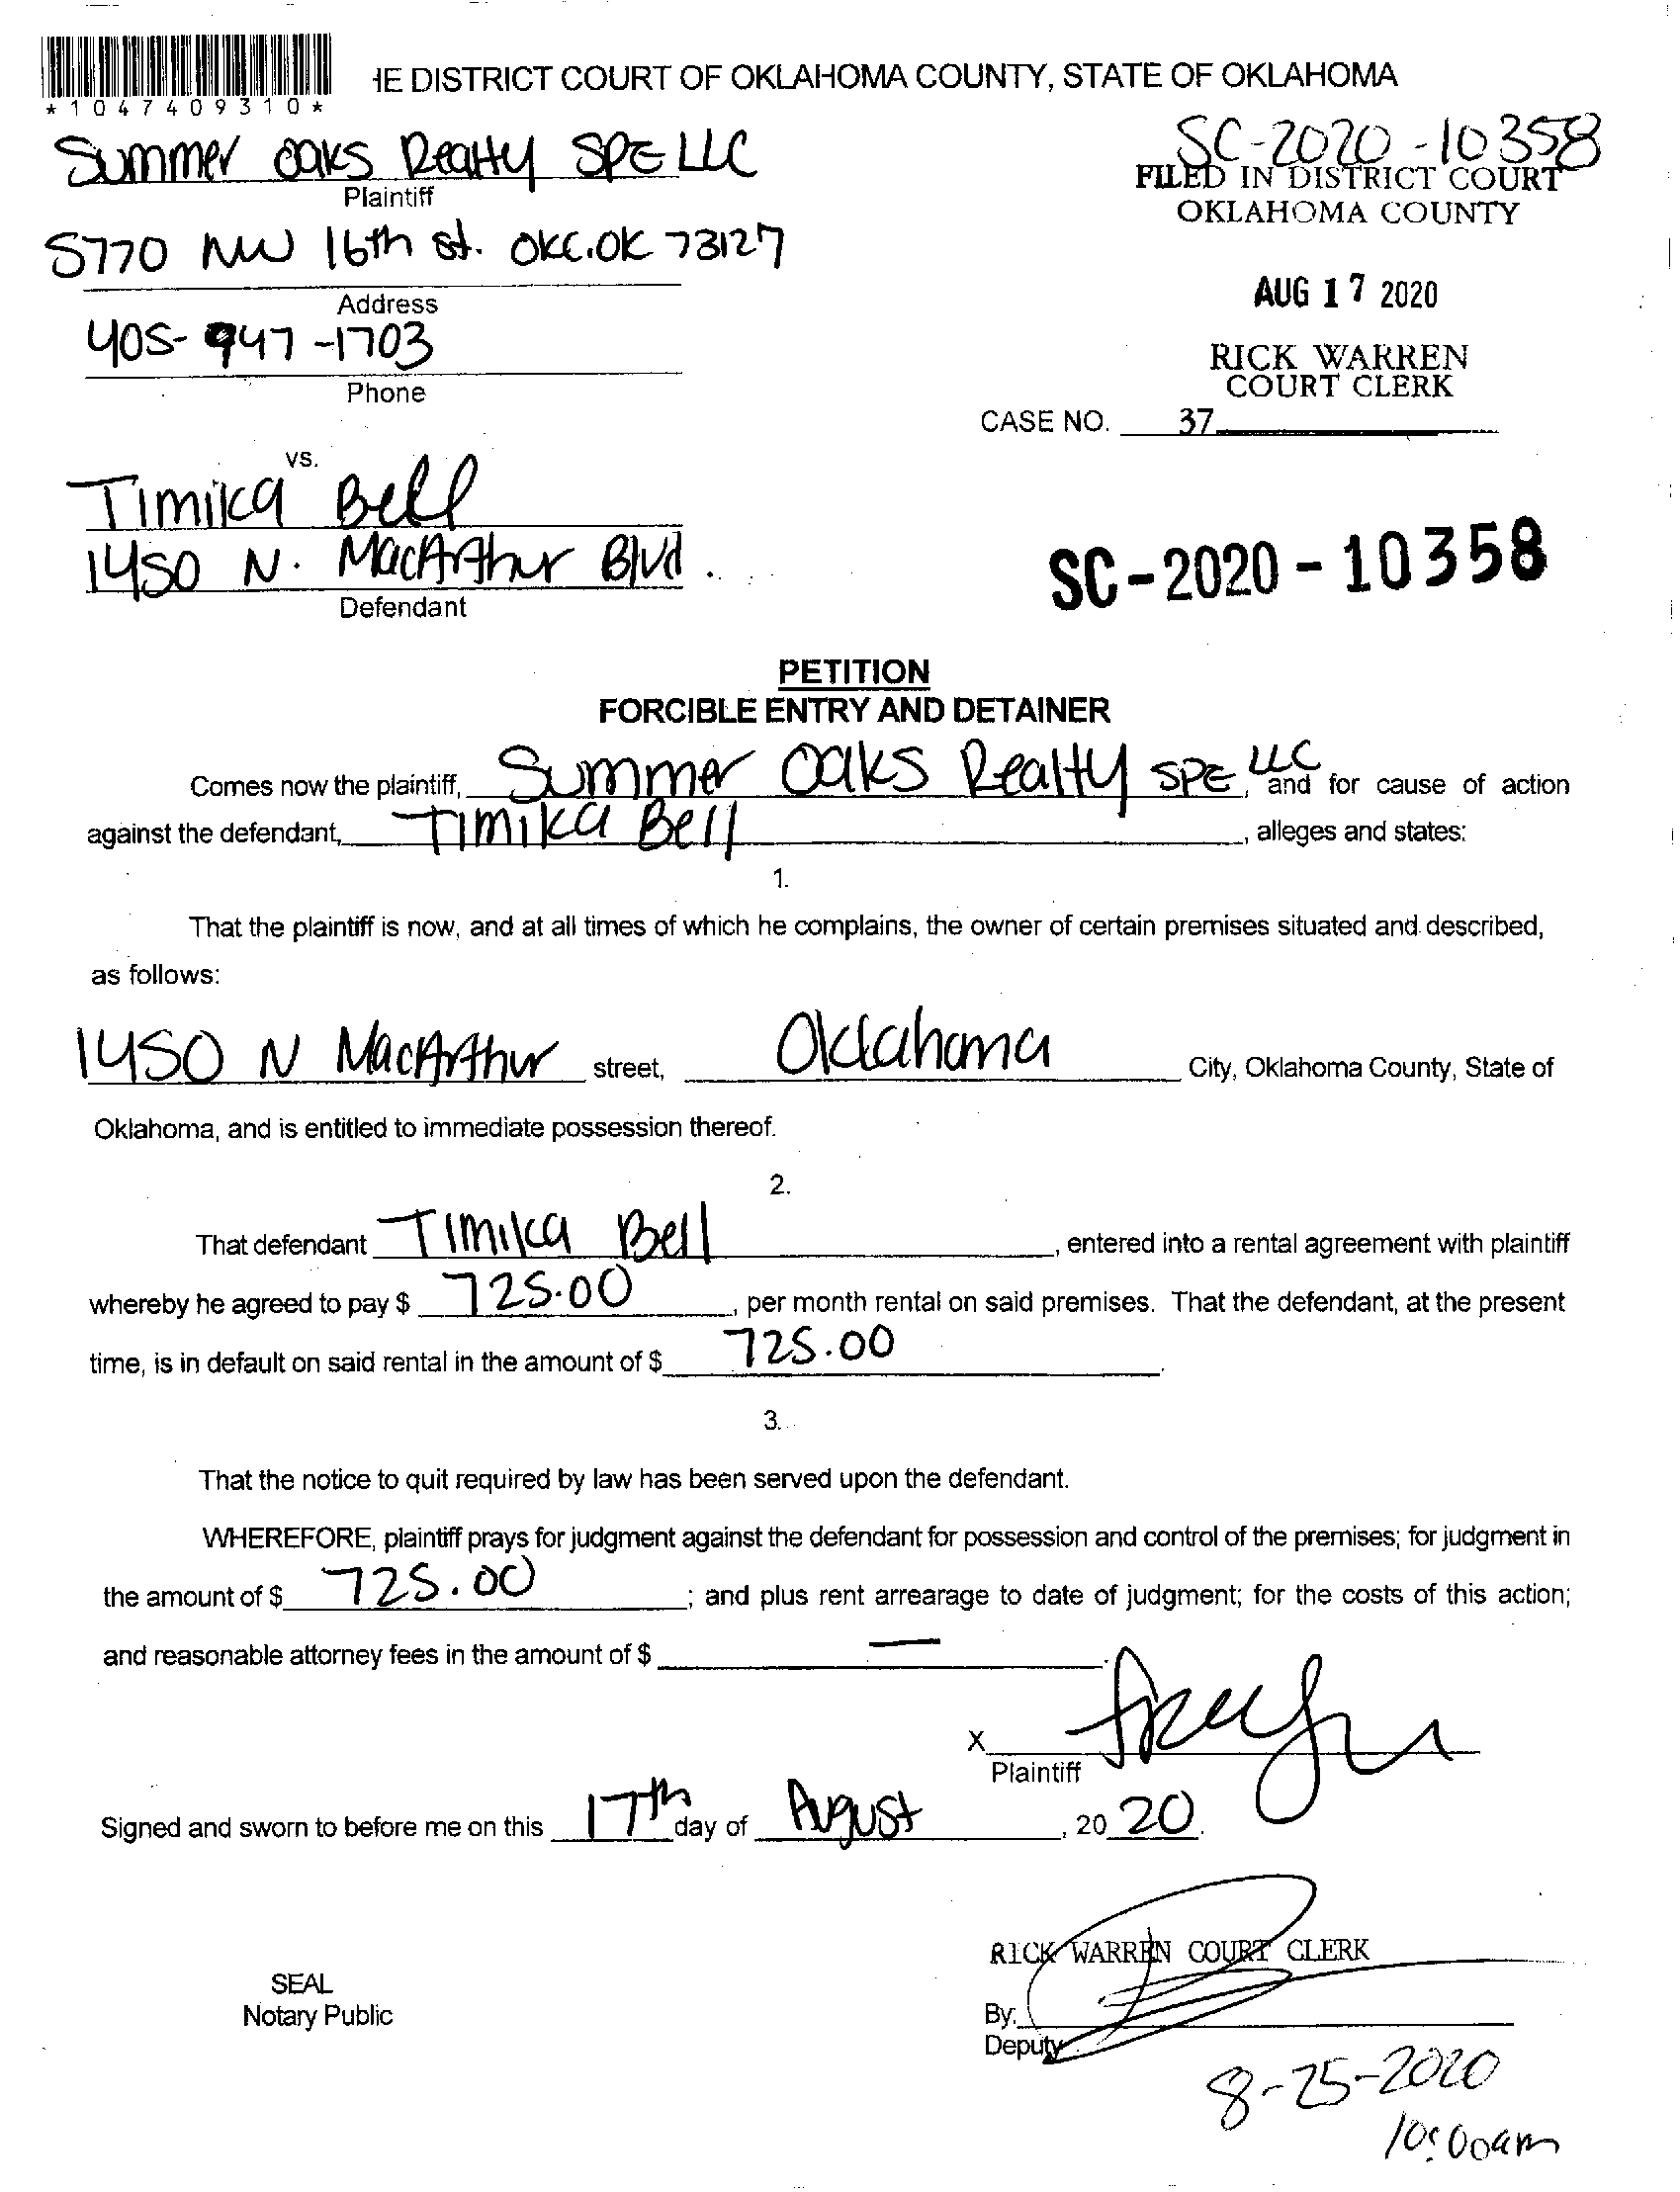 *1047409310*
IE DISTRICT COURT OF OKLAHOMA COUNTY, STATE OF OKLAHOMA
Summer Oaks Realty SPE LLC
Plaintiff
SC-2020-10358
FILED IN DISTRICT COURT
OKLAHOMA COUNTY
5770 NW 16th st. OKC.OK 73127
Address
AUG 17 2020
405-947-1703
Phone
RICK WARREN
COURT CLERK
CASE NO. 37
vs.
Timika Bell
1450 N. MacArthur Blvd.
Defendant
SC-2020-10358
PETITION
FORCIBLE ENTRY AND DETAINER
Comes now the plaintiff, Summer Oaks Realty SPE LLC, and for cause of action
against the defendant, Timika Bell, alleges and states:
1.
That the plaintiff is now, and at all times of which he complains, the owner of certain premises situated and described,
as follows:
1450 N MacArthur street, Oklahoma City, Oklahoma County, State of
Oklahoma, and is entitled to immediate possession thereof.
2.
That defendant Timika Bell, entered into a rental agreement with plaintiff
whereby he agreed to pay $ 725.00, per month rental on said premises. That the defendant, at the present
time, is in default on said rental in the amount of $ 725.00.
3.
That the notice to quit required by law has been served upon the defendant.
WHEREFORE, plaintiff prays for judgment against the defendant for possession and control of the premises; for judgment in
the amount of $ 725.00; and plus rent arrearage to date of judgment; for the costs of this action;
and reasonable attorney fees in the amount of $ —.
X
Plaintiff
Signed and sworn to before me on this 17th day of August, 20 20.
RICK WARREN COURT CLERK
SEAL
Notary Public
By:
Deputy
8-25-2020
10:00am